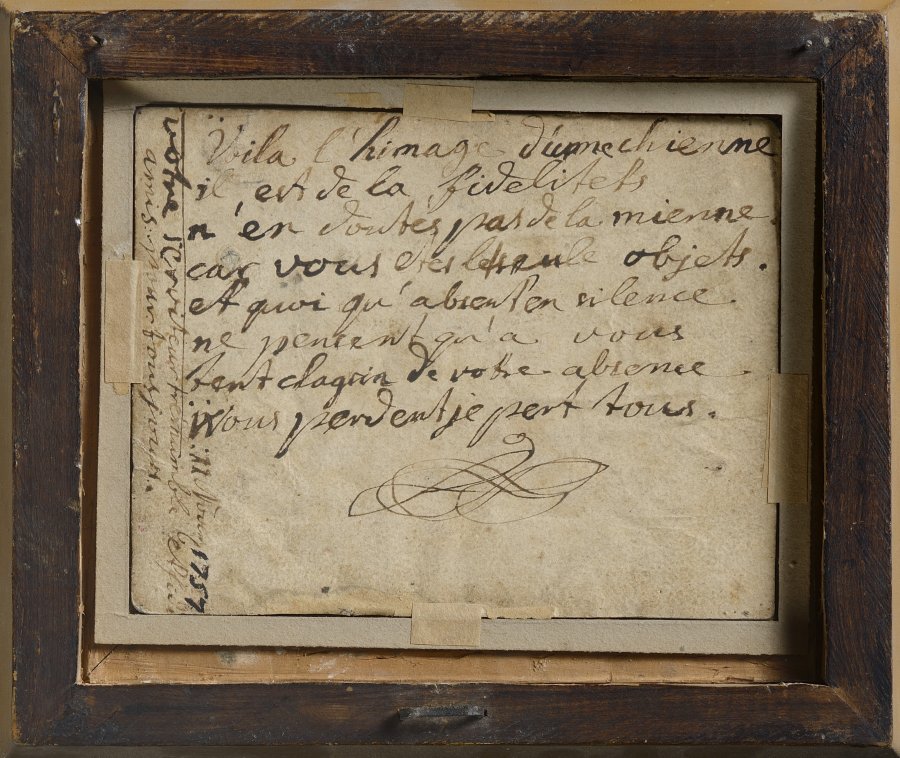 Voila l'himage d'unne chienne
il, est de la fidelitets
n'en doutés pas de la mienne.
car vous etes le seule objets.
et quoi qu'absent en silence.
ne pencent qu'a vous
chagrin de votre absence.
Vous perdent je pert tous.
votre serviteur humble
amis pour tousjours.
1757